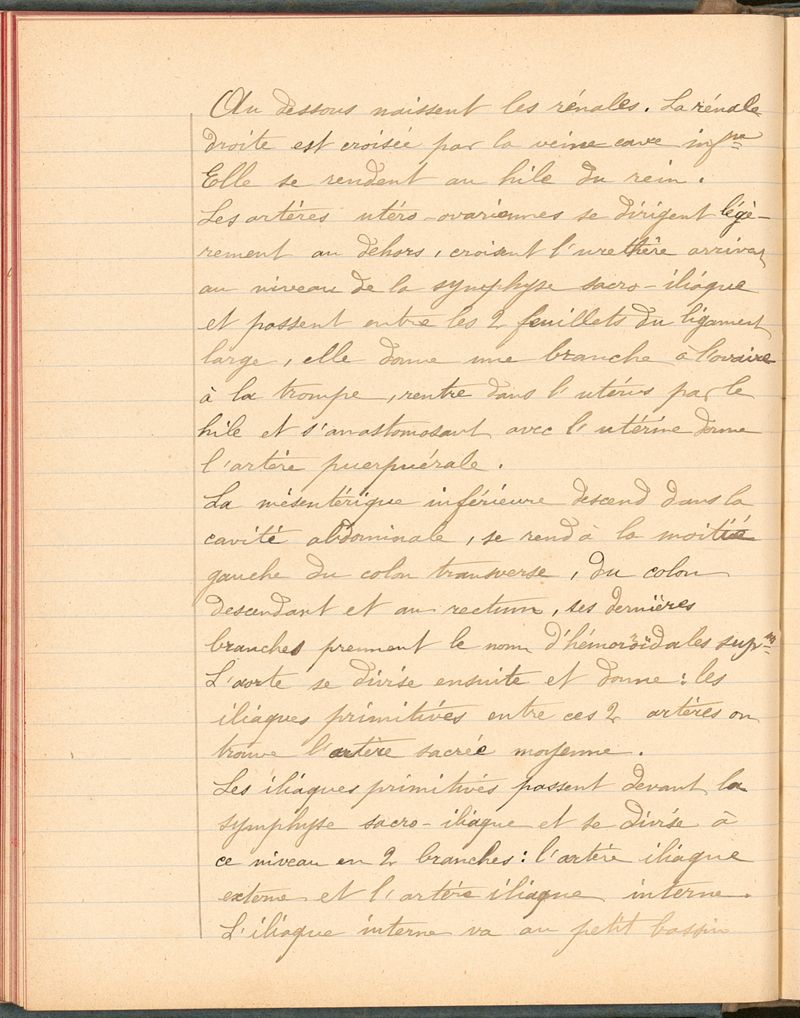 Au dessous naissent les rénales. La rénale
droite est croisée par la veine cave inf^re
Elle se rendent au hile du rein.
Les artères utéro-ovariennes se dirigent légè-
rement au dehors, croisent l'urethère arrivant
au niveau de la symphyse sacro-iliaque
et passent entre les 2 feuillets du ligament
large, elle donne une branche à l'ovaire
à la trompe, rentre dans l'utérus par le
hile et s'anastomosant avec l'utérine donne
l'artère puerpuérale.
La mésentérique inférieure descend dans la
cavité abdominale, se rend à la moitié
gauche du colon transverse, du colon
descendant et au rectum, ses dernières
branches prennent le nom d'hémoroïdales sup^res
L'aorte se divise ensuite et donne: les
iliaques primitives entre ces 2 artères on
trouve l'artère sacrée moyenne.
Les iliaques primitives passent devant la
symphyse sacro-iliaque et se divise à
ce niveau en 2 branches: l'artère iliaque
externe et l'artère iliaque interne.
L'iliaque interne va au petit bassin